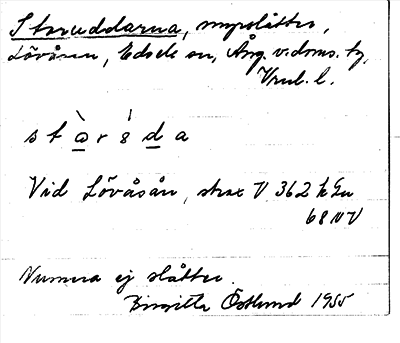 Storuddarna, myrslåtter,
Lövåsen, Edsele sn, Ång. v. doms. tg,
Vnl. l.
st a r 8 d a
Vid Lövåsån, strax V 362 k Gu
68 NV
Numera ej slåtter.
Birgitta Östlund 1955